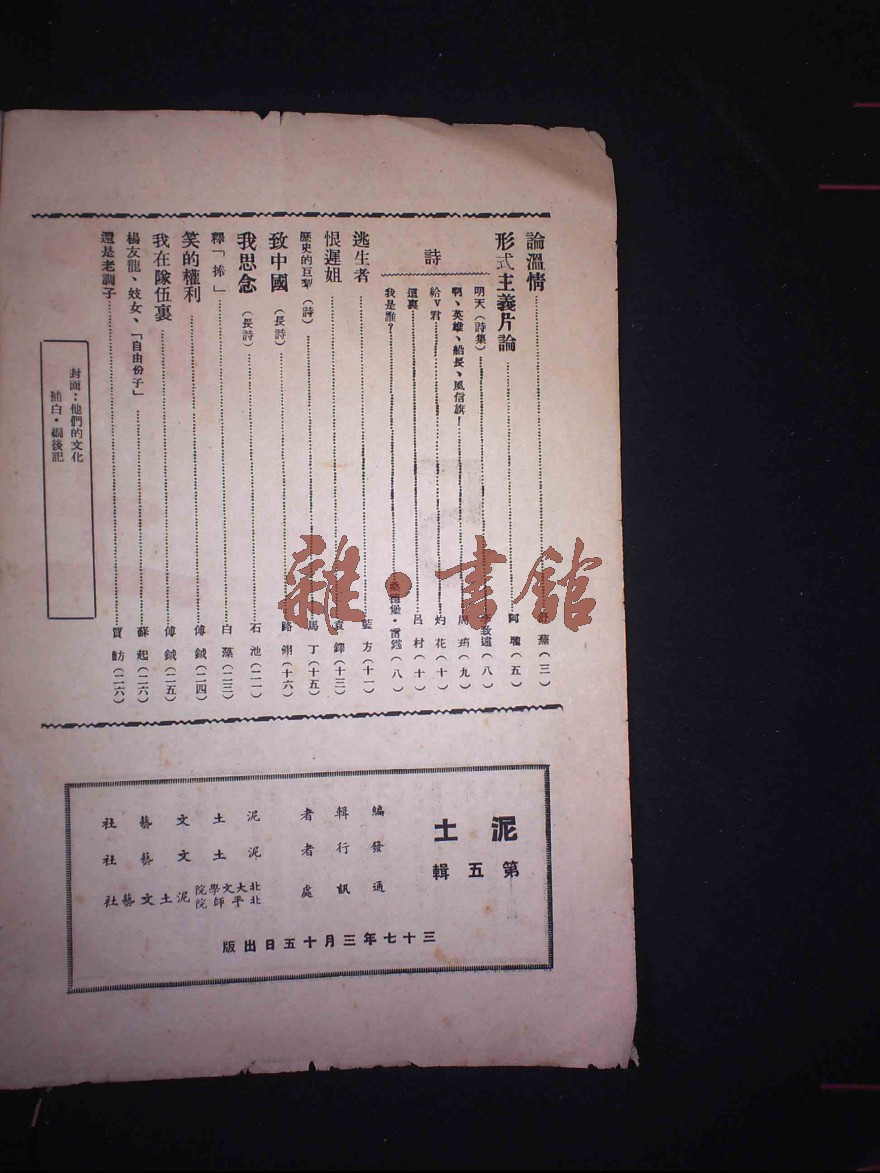 論溫情……舒蕪(三)
形式主義片論……阿壠(五)
詩
明天(詩集)……李致遠(八)
啊、英雄、船長、風信旗!……周筠(九)
給V君……灼花(十)
這裏……呂村(十)
我是誰?……桑德堡·雷鐙(八)
逃生者……藍方(十一)
恨遲姐……袁鐸(十三)
歷史的巨犁(詩)……馬丁(十五)
致中國(長詩)……路翎(十六)
我思念(長詩)……石池(二一)
釋「捧」……白藻(二三)
笑的權利……傅鉞(二四)
我在隊伍裏……傅鉞(二五)
楊友龍、妓女、「自由份子」……蘇起(二六)
還是老調子……賈舫(二六)
封面:他們的文化
補白·編後記
雜·書館
泥土
第五輯
編輯者 泥土文藝社
發行者 泥土文藝社
通訊處 北大文學院 北平師院 泥土文藝社
三十七年三月十五日出版